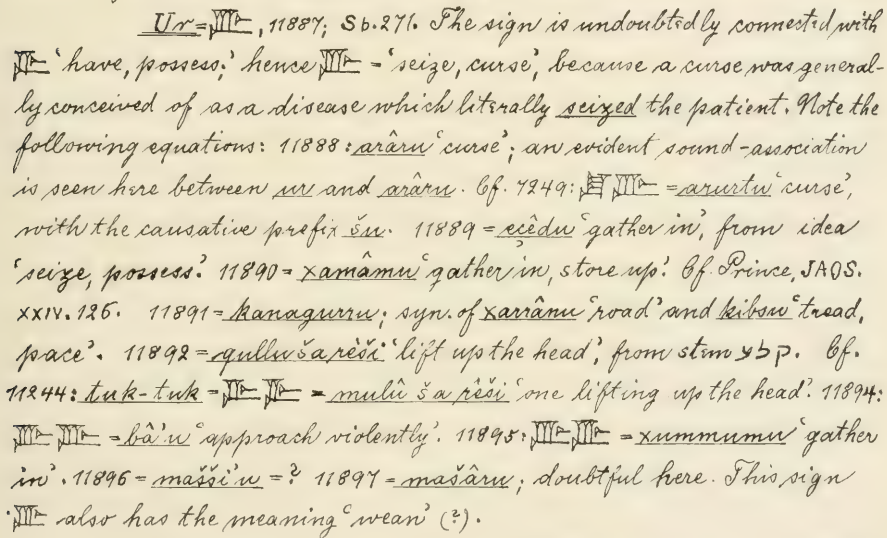 Ur = 𒌴, 11887; Sb. 271. The sign is undoubtedly connected with
𒌇 ‘have, possess;’ hence 𒌴 = ‘seize, curse’, because a curse was general-
ly conceived of as a disease which literally seized the patient. Note the
following equations: 11888: arâru ‘curse’; an evident sound-association
is seen here between ur and arâru. Cf. 7249: 𒋗𒌴 = arurtu ‘curse’,
with the causative prefix šu. 11889 = ecêdu ‘gather in’, from idea
‘seize, possess’. 11890 = xamâmu ‘gather in, store up’. Cf. Prince, JAOS.
XXIV. 126. 11891 = kanagurru; syn. of xarrânu ‘road’ and kibsu ‘tread,
pace’. 11892 = qullu ša rêši ‘lift up the head’, from stem קלע. Cf.
11244: tuk-tuk = 𒌇𒌇 = mulû ša rêši ‘one lifting up the head’. 11894:
𒌴𒌴 = bâ’u ‘approach violently’. 11895: 𒌴𒌴 = xummumu ‘gather
in’. 11896 = mašši’u = ? 11897 = mašâru; doubtful here. This sign
𒌴 also has the meaning ‘wean’ (?).